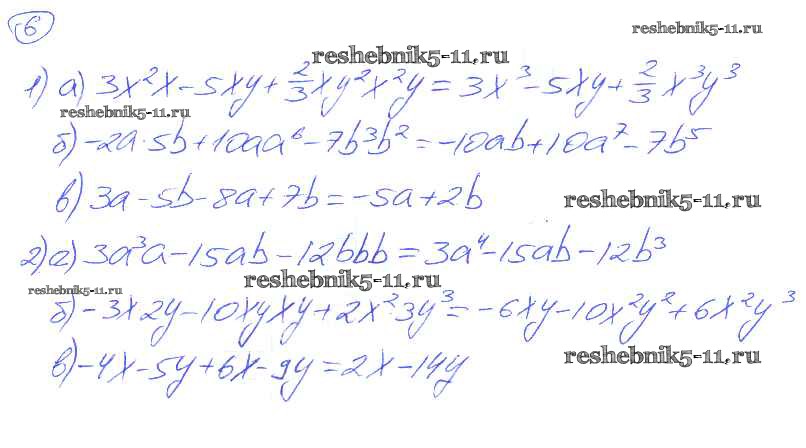 6
reshebnik5-11.ru
reshebnik5-11.ru
1) а) 3x²x - 5xy + 2/3xy²x²y = 3x³ - 5xy + 2/3 x³y³
reshebnik5-11.ru
б) -2a·5b + 10aa⁶ - 7b³b² = -10ab + 10a⁷ - 7b⁵
в) 3a - 5b - 8a + 7b = -5a + 2b
reshebnik5-11.ru
2) а) 3a³a - 15ab - 12bbb = 3a⁴ - 15ab - 12b³
reshebnik5-11.ru
reshebnik5-11.ru
б) -3x2y - 10xyxy + 2x²·3y³ = -6xy - 10x²y² + 6x²y³
в) -4x - 5y + 6x - 9y = 2x - 14y
reshebnik5-11.ru